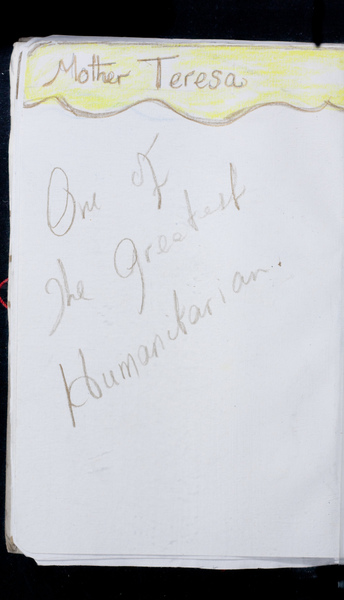 Mother Teresa
One of
The Greatest
Humanitarian.